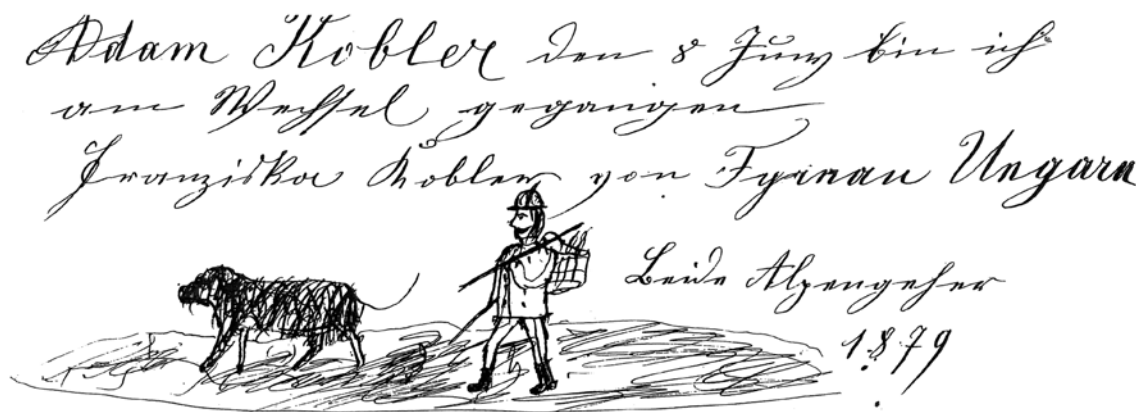 Adam Kobler den 8 Juny bin ich
am Wechsel gegangen
Franziska Kobler von Tyrnau Ungarn
Beide Alpengeher
1879